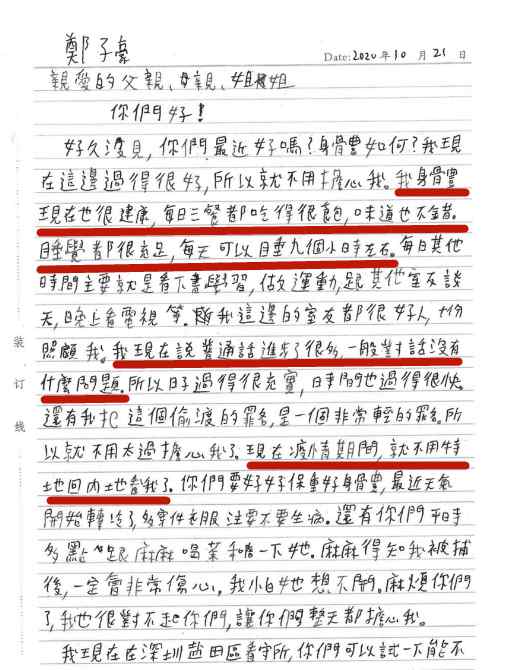 鄭子豪
Date: 2020 年 10 月 21 日
親愛的父親、母親、姐姐
你們好!
好久沒見,你們最近好嗎?身體如何?我現
在這邊過得很好,所以就不用擔心我。我身體
現在也很健康,每日三餐都吃得很飽,味道也不錯。
睡覺都很充足,每天可以睡九個小時左右。每日其他
時間主要就是看下書學習,做運動,跟其他室友談
天,晚上看電視等。我這邊的室友都很好人,十分
照顧我。我現在說普通話進步了很多,一般對話沒有
什麼問題。所以日子過得很充實,日時間也過得很快。
還有我犯這個偷渡的罪名,是一個非常輕的罪名。所
以就不用太過擔心我了。現在疫情期間,就不用特
地回內地看我了。你們要好好保重好身體,最近天氣
開始轉冷了,多穿件衣服注要不要生病。還有你們平時
多點跟麻麻喝茶和瞻一下她。麻麻得知我被捕
後,一定會非常傷心。我小白她想不開。麻煩你們
了,我也很對不起你們,讓你們整天都擔心我。
我現在在深圳盐田區看守所,你們可以試一下能不
装
订
线